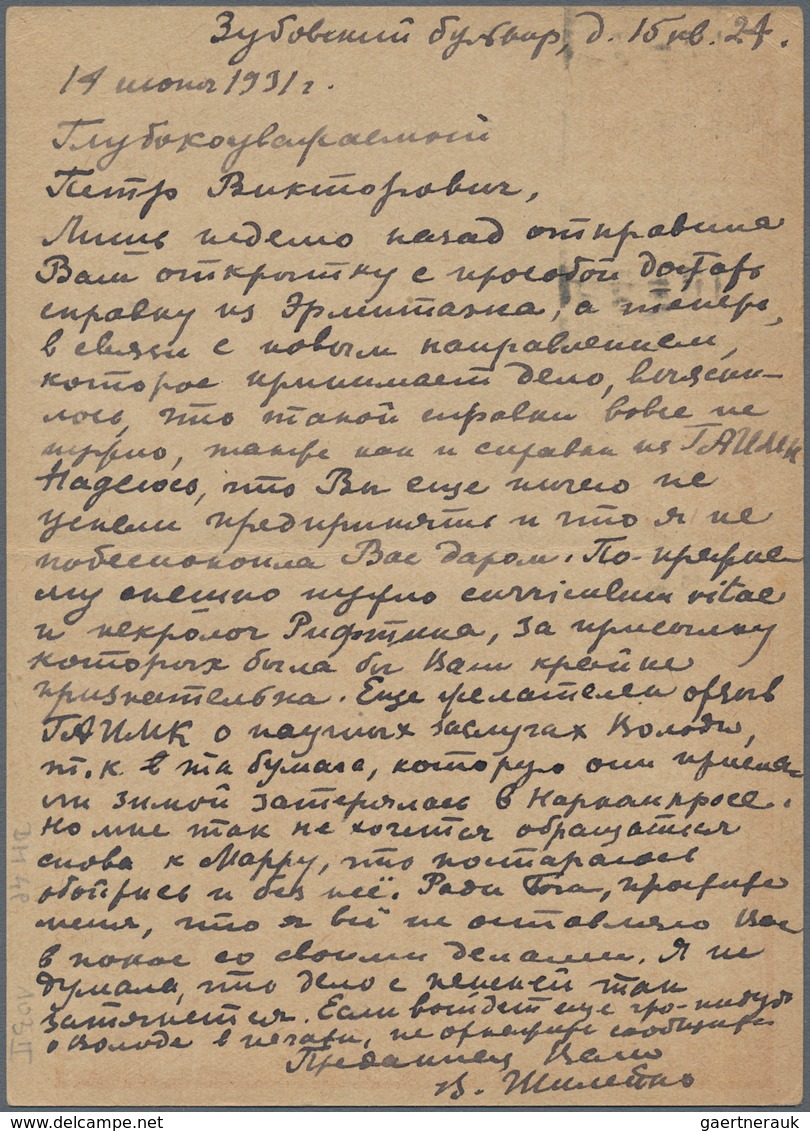 Зубовский бульвар, д. 15 кв. 27.
14 июня 1931 г.
Глубокоуважаемый
Петр Викторович,
Лишь неделю назад отправила
Вам открытку с просьбой достать
справку из Эрмитажа, а теперь,
в связи с новым направлением,
которое принимает дело, выясни-
лось, что такой справки вовсе не
нужно, также как и справки из ГАИМК
Надеюсь, что Вы еще ничего не
успели предпринять и что я не
побеспокоила Вас даром. По-прежне-
му спешно нужно curriculum vitae
и некролог Рифтина, за присылку
которых была бы Вам крайне
признательна. Еще желателен отзыв
ГАИМК о научных заслугах Володи,
т. к. та бумага, которую они присла-
ли зимой затерялась в Наркомпросе.
Но мне так не хочется обращаться
снова к Марру, что постараюсь
обойтись и без неё. Ради Бога, простите
меня, что я всё не оставляю Вас
в покое со своими делами. Я не
думала, что дело с пенсией так
затянется. Если выйдет еще что-нибудь
о Володе в печати, не откажите сообщить
Преданная Вам
В. Шилейко
DM 46
103 II
gaertnerauk